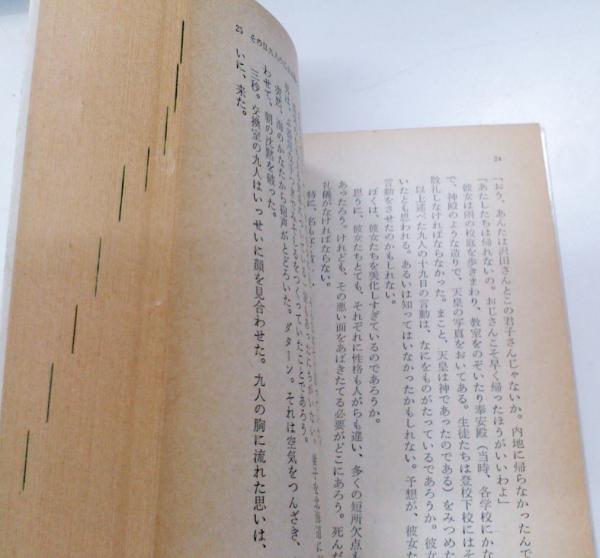 24
「おう、あんたは沢田さんとこの君子さんじゃないか。内地に帰らなかったんで
「あたしたちは帰れないの。おじさんこそ早く帰ったほうがいいわよ」
彼女は雨の校庭を歩きまわり、教室をのぞいたり奉安殿（当時、各学校にかな
で、神殿のような造りで、天皇の写真をおいてある。生徒たちは登校下校にはそ
敬礼しなければならなかった。まこと、天皇は神であったのである）をみつめた
以上述べた九人の十九日の言動は、なにをものがたっているであろうか。彼女
いたとも思われる。あるいは知ってはいなかったかもしれない。予想が、彼女た
言動をさせたのかもしれない。
ぼくは、彼女たちを美化しすぎているのであろうか。
思うに、彼女たちとても、それぞれに性格も人がらも違い、多くの短所欠点も
あったろう。けれども、その悪い面をあばきたてる必要がどこにあろう。死んだ
礼儀がなければならない。
特に、
25
つくっていたことであろう。
突然、海のかなたから砲声がとどろいた。ダターン。それは空気をつんざき、
わせて、朝の沈黙を破った。
三秒。交換室の九人はいっせいに顔を見合わせた。九人の胸に流れた思いは、
いに、来た。